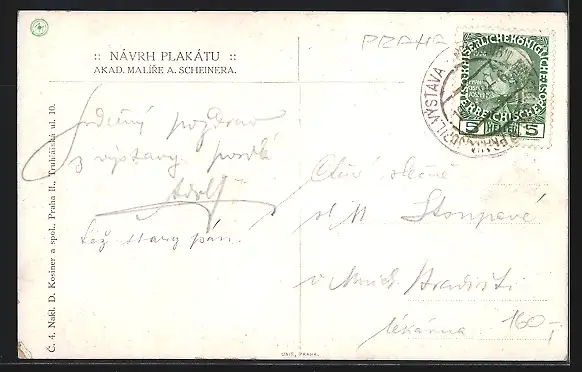 PRAHA
:: NÁVRH PLAKÁTU ::
AKAD. MALÍŘE A. SCHEINERA.
Srdečný pozdrav
z výstavy posílá
Adolf
též starý pán.
Č. 4. Nakl. D. Kosiner a spol., Praha II., Truhlářská ul. 10.
UNIE, PRAHA.
VÝSTAVA
5 HELLER 5
Ctěné slečně
sl. M Stoupové
v Mnich. Hradišti
lékárna
160,-